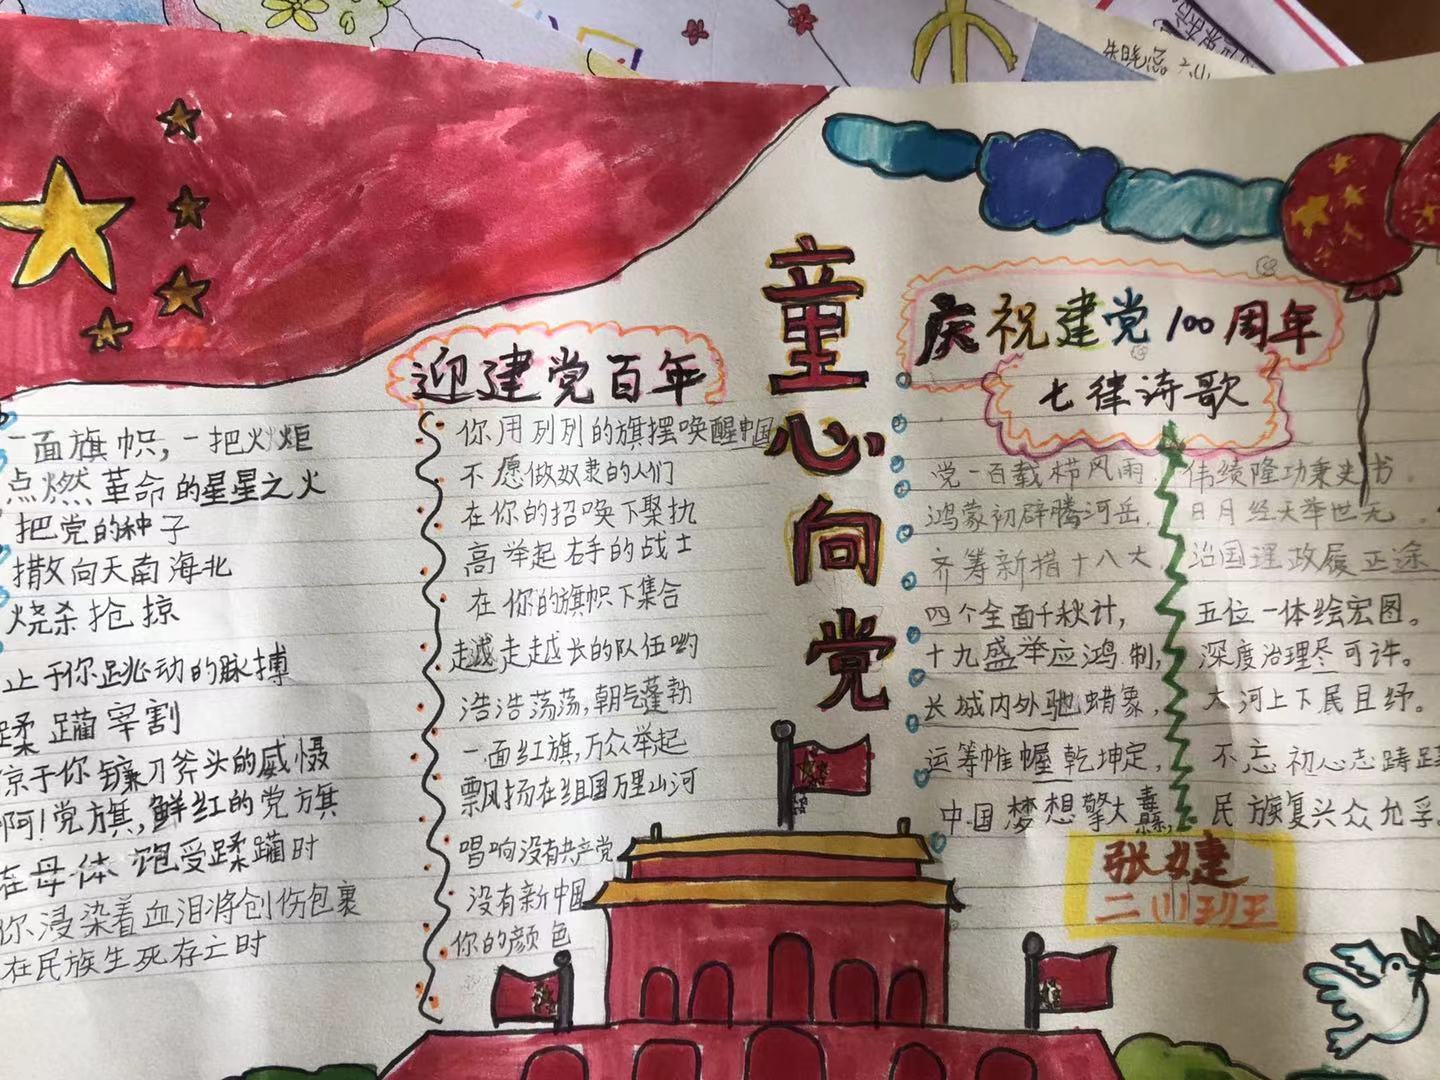 朱晓
童心向党
迎建党百年
一面旗帜,一把火炬
点燃革命的星星之火
把党的种子
撒向天南海北
烧杀抢掠
止于你跳动的脉搏
蹂躏宰割
于你镰刀斧头的威慑
啊!党旗,鲜红的党旗
在母体饱受蹂躏时
你浸染着血泪将创伤包裹
在民族生死存亡时
你用列列的旗摆唤醒中国
不愿做奴隶的人们
在你的招唤下聚执
高举起右手的战士
在你的旗帜下集合
越走越长的队伍哟
浩浩荡荡,朝气蓬勃
一面红旗,万众举起
飘扬在祖国万里山河
唱响没有共产党
没有新中国
你的颜色
庆祝建党100周年
七律诗歌
党一百载栉风雨 伟绩隆功秉史书.
鸿蒙初辟腾河岳. 日月经天举世无.
齐筹新措十八大, 治国理政履正途
四个全面千秋计, 五位一体绘宏图。
十九盛举应鸿制, 深度治理尽可许。
长城内外驰蜡象, 大河上下民目纾。
运筹帷幄乾坤定, 不忘初心志踌
中国梦想擎大纛, 民族复兴众允孚
张婕
二(1)班